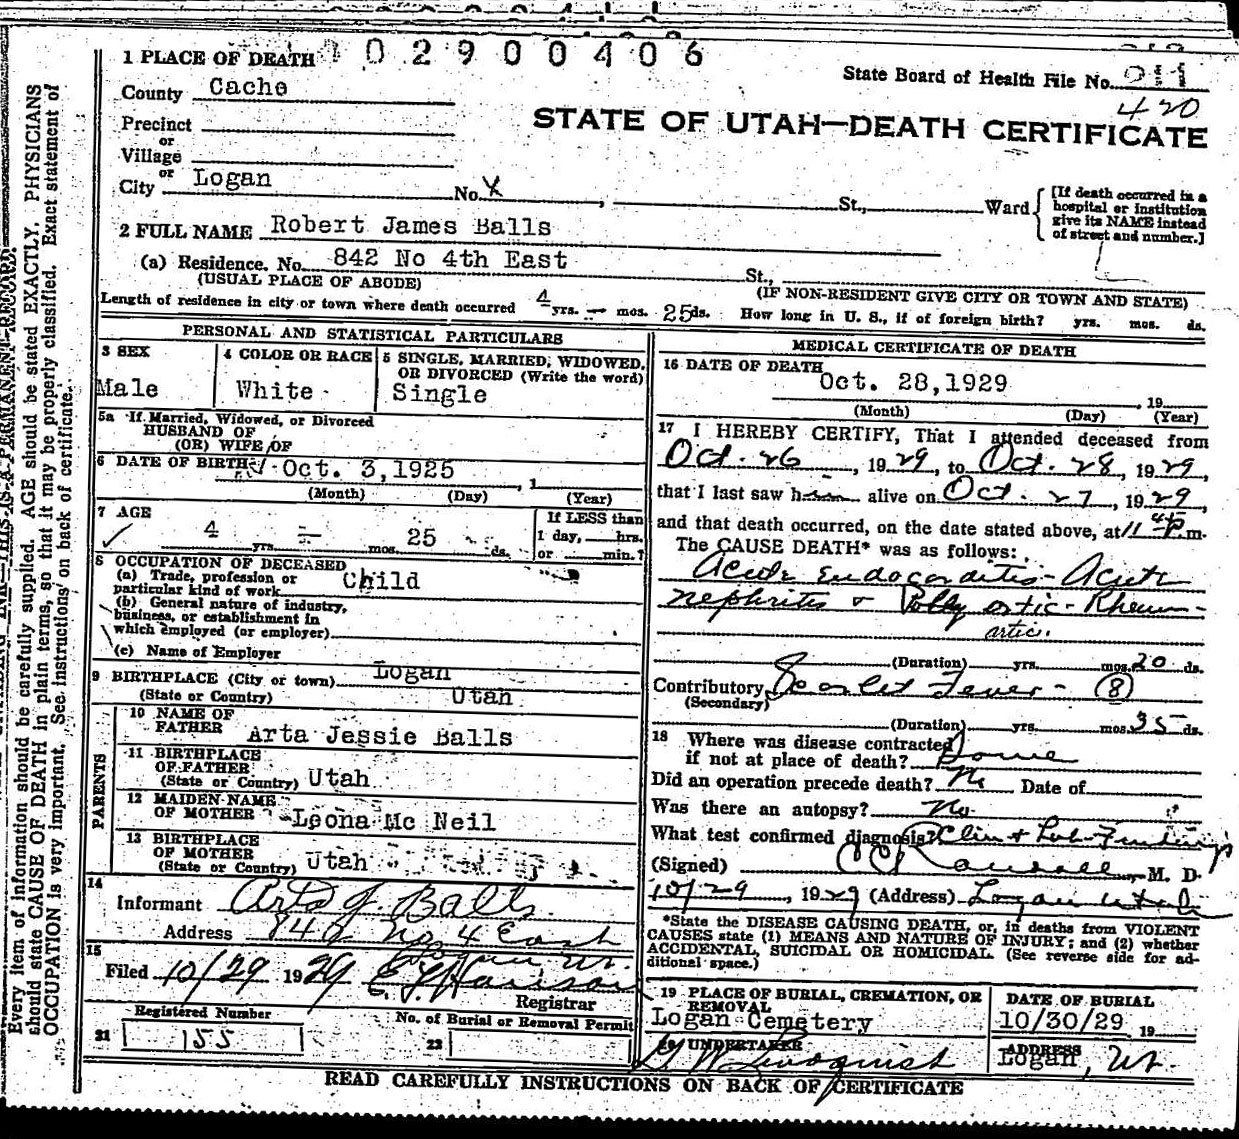 1 PLACE OF DEATH
0 2 9 0 0 4 0 6
State Board of Health File No. 211
420
County Cache
STATE OF UTAH—DEATH CERTIFICATE
Precinct
or
Village
or
City Logan No. X St., Ward
[If death occurred in a hospital or institution give its NAME instead of street and number.]
2 FULL NAME Robert James Balls
(a) Residence. No. 842 No 4th East St.,
(USUAL PLACE OF ABODE) (IF NON-RESIDENT GIVE CITY OR TOWN AND STATE)
Length of residence in city or town where death occurred 4 yrs. — mos. 25 ds. How long in U. S., if of foreign birth? yrs. mos. ds.
PERSONAL AND STATISTICAL PARTICULARS
3 SEX
Male
4 COLOR OR RACE
White
5 SINGLE, MARRIED, WIDOWED,
OR DIVORCED (Write the word)
Single
5a If Married, Widowed, or Divorced
HUSBAND OF
(OR) WIFE OF
6 DATE OF BIRTH Oct. 3,1925 , 1
(Month) (Day) (Year)
7 AGE
4 yrs. — mos. 25 ds.
If LESS than
1 day, hrs.
or min.?
8 OCCUPATION OF DECEASED
(a) Trade, profession or
particular kind of work Child
(b) General nature of industry,
business, or establishment in
which employed (or employer)
(c) Name of Employer
9 BIRTHPLACE (City or town) Logan
(State or Country) Utah
PARENTS
10 NAME OF
FATHER Arta Jessie Balls
11 BIRTHPLACE
OF FATHER
(State or Country) Utah
12 MAIDEN NAME
OF MOTHER Leona Mc Neil
13 BIRTHPLACE
OF MOTHER
(State or Country) Utah
14
Informant Arta J. Balls
Address 842 No 4 East
Logan Ut.
15
Filed 10/29 1929
Registrar
Registered Number
21 155
No. of Burial or Removal Permit
22
MEDICAL CERTIFICATE OF DEATH
16 DATE OF DEATH Oct. 28,1929 , 19
(Month) (Day) (Year)
17 I HEREBY CERTIFY, That I attended deceased from
Oct. 26, 1929, to Oct. 28, 1929,
that I last saw him alive on Oct. 27, 1929,
and that death occurred, on the date stated above, at 11 45 p.m.
The CAUSE DEATH* was as follows:
Acute Endocarditis - Acute
nephritis + Polly artic - Rheum-
atic.
(Duration) yrs. mos. 20 ds.
Contributory Scarlet Fever - (8)
(Secondary)
(Duration) yrs. mos. 35 ds.
18 Where was disease contracted
if not at place of death? Home
Did an operation precede death? No Date of
Was there an autopsy? No
What test confirmed diagnosis? Clin + Lab Findings
(Signed) M. D.
10/29, 1929 (Address) Logan Utah
*State the DISEASE CAUSING DEATH, or, in deaths from VIOLENT
CAUSES state (1) MEANS AND NATURE OF INJURY; and (2) whether
ACCIDENTAL, SUICIDAL OR HOMICIDAL. (See reverse side for ad-
ditional space.)
19 PLACE OF BURIAL, CREMATION, OR
REMOVAL
Logan Cemetery
DATE OF BURIAL
10/30/29 19
20 UNDERTAKER
ADDRESS
Logan, Ut
READ CAREFULLY INSTRUCTIONS ON BACK OF CERTIFICATE
Every item of information should be carefully supplied. AGE should be stated EXACTLY. PHYSICIANS
should state CAUSE OF DEATH in plain terms, so that it may be properly classified. Exact statement of
OCCUPATION is very important. See instructions on back of certificate.